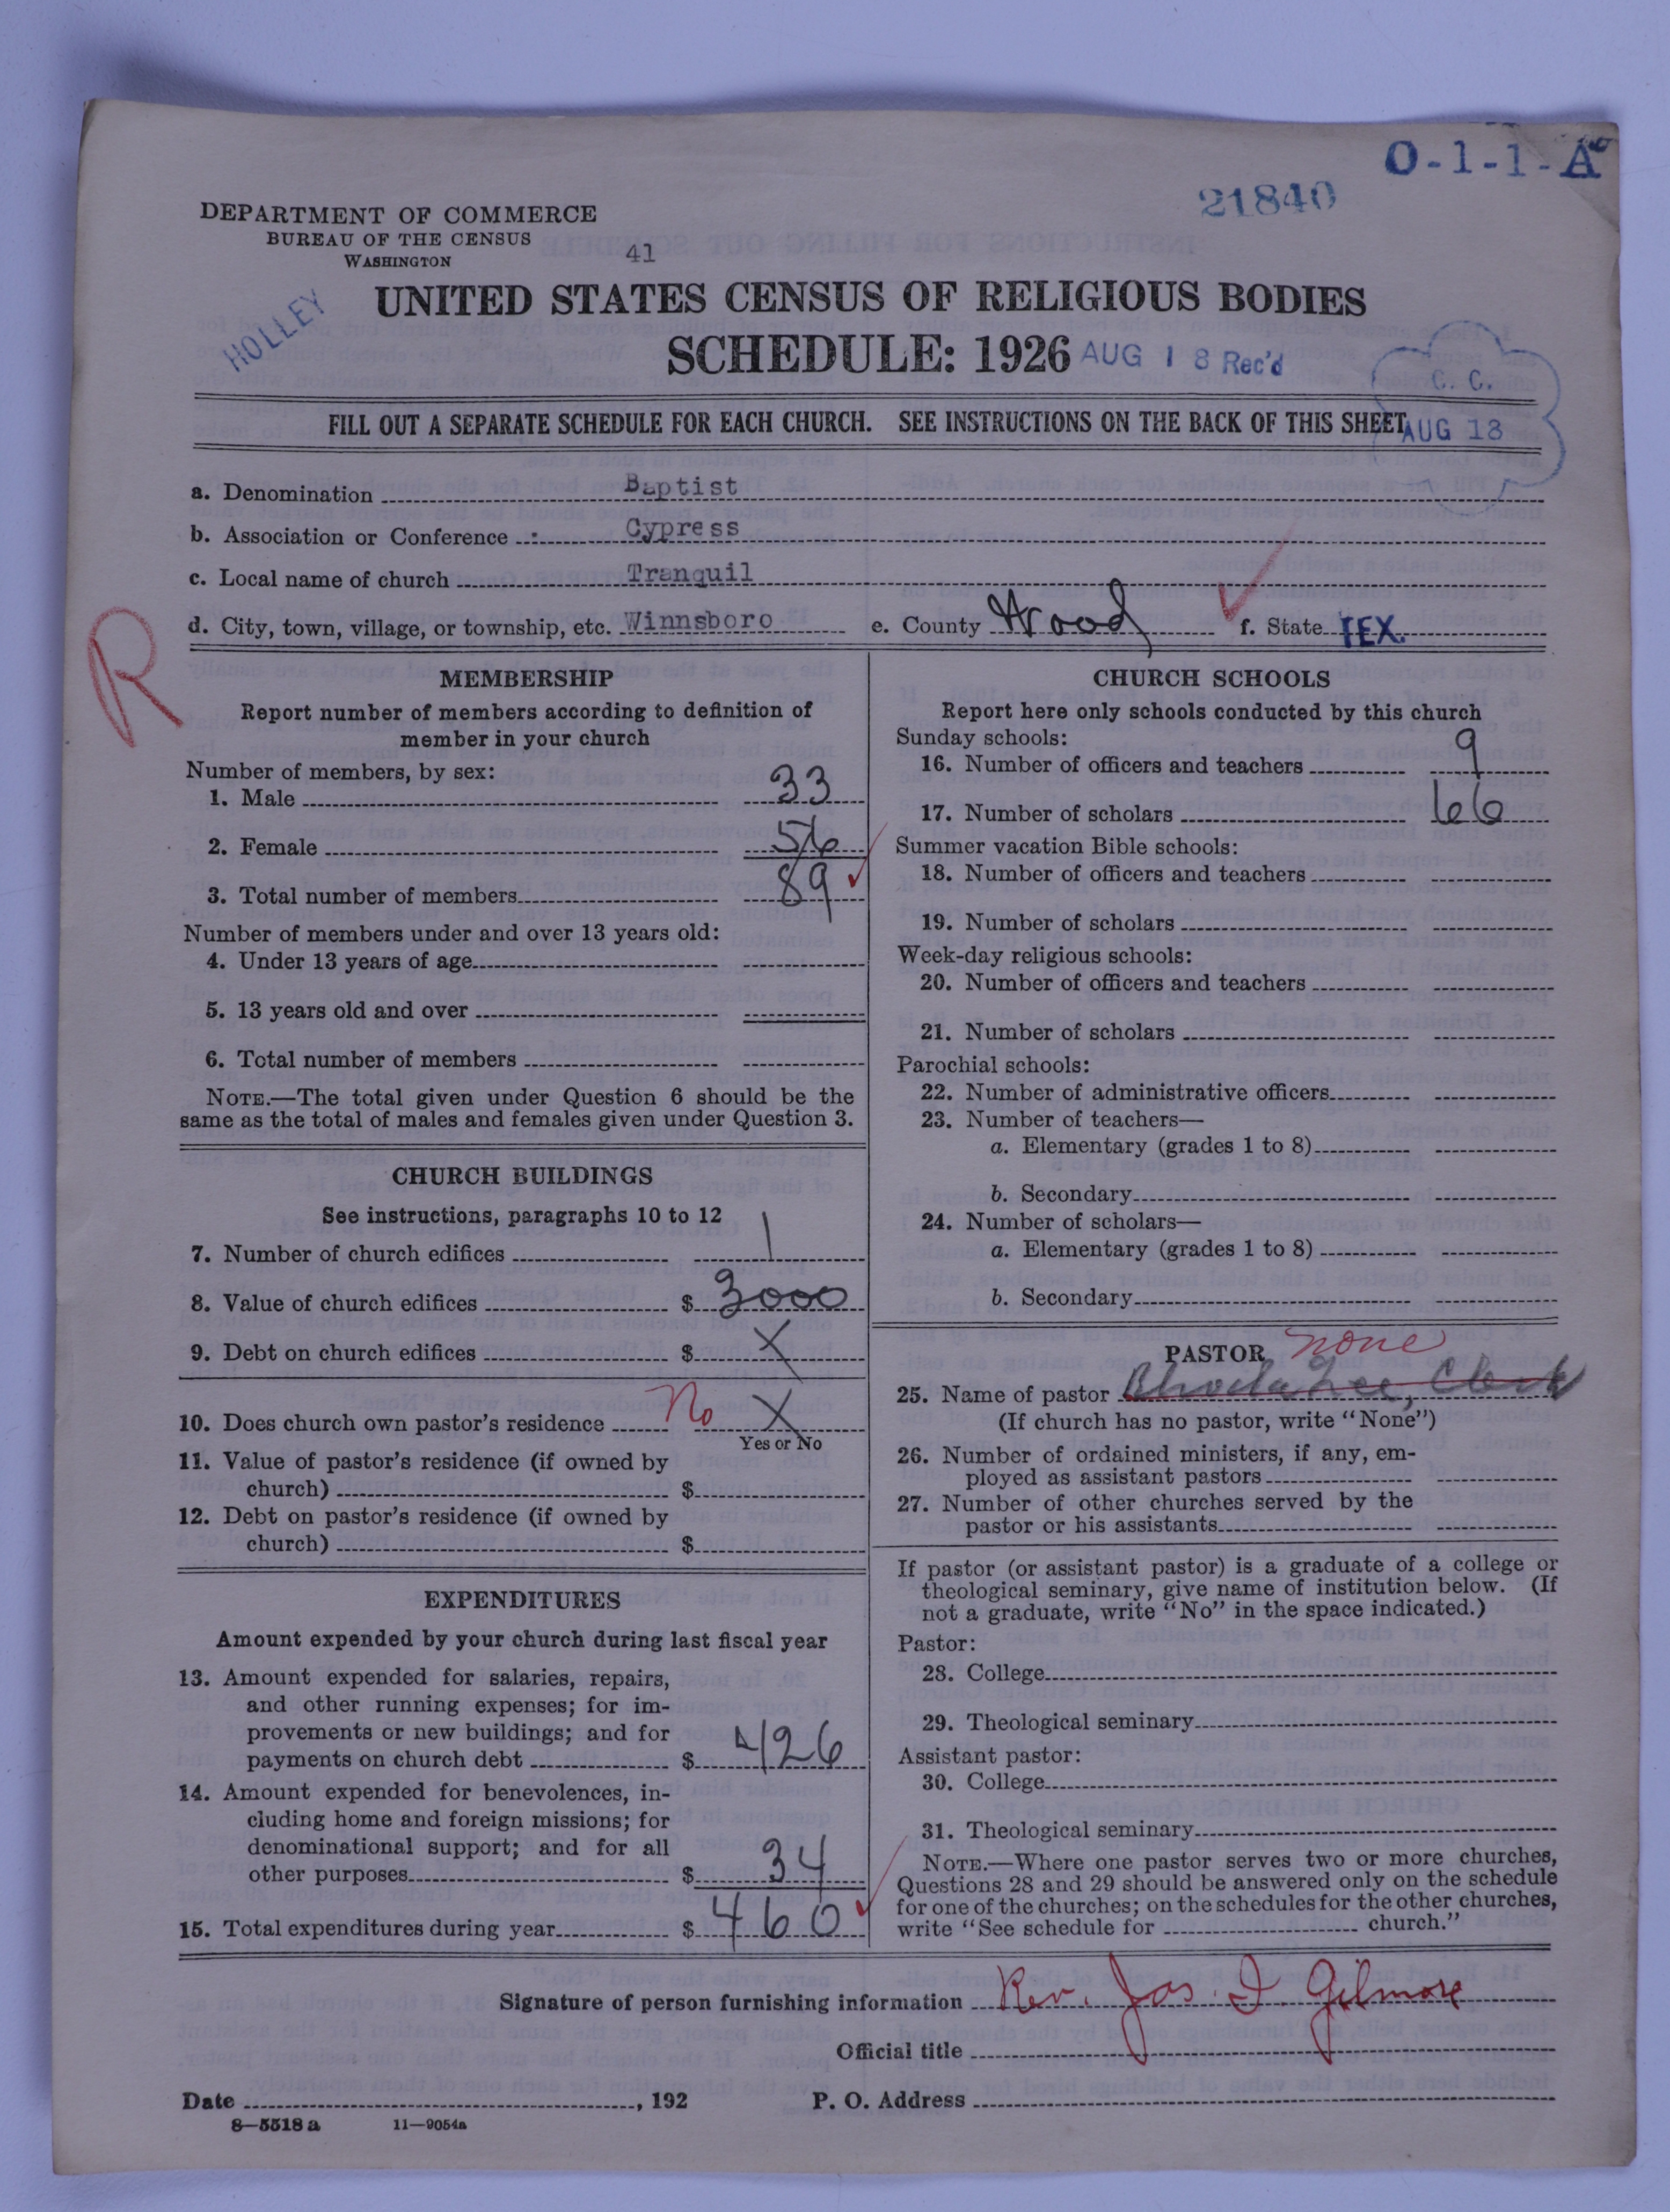 O-1-1-A
21840
DEPARTMENT OF COMMERCE
BUREAU OF THE CENSUS
WASHINGTON
41
HOLLEY
UNITED STATES CENSUS OF RELIGIOUS BODIES
SCHEDULE: 1926
AUG 18 Rec'd
C. C.
AUG 18
FILL OUT A SEPARATE SCHEDULE FOR EACH CHURCH. SEE INSTRUCTIONS ON THE BACK OF THIS SHEET
a. Denomination Baptist
b. Association or Conference Cypress
c. Local name of church Tranquil
d. City, town, village, or township, etc. Winnsboro e. County Wood f. State TEX.
R
MEMBERSHIP
Report number of members according to definition of
member in your church
Number of members, by sex:
1. Male 33
2. Female 56
3. Total number of members 89
Number of members under and over 13 years old:
4. Under 13 years of age
5. 13 years old and over
6. Total number of members
NOTE.—The total given under Question 6 should be the
same as the total of males and females given under Question 3.
CHURCH BUILDINGS
See instructions, paragraphs 10 to 12
7. Number of church edifices 1
8. Value of church edifices $ 3000
9. Debt on church edifices $ X
10. Does church own pastor's residence No X
Yes or No
11. Value of pastor's residence (if owned by
church) $
12. Debt on pastor's residence (if owned by
church) $
EXPENDITURES
Amount expended by your church during last fiscal year
13. Amount expended for salaries, repairs,
and other running expenses; for im-
provements or new buildings; and for
payments on church debt $ 426
14. Amount expended for benevolences, in-
cluding home and foreign missions; for
denominational support; and for all
other purposes $ 34
15. Total expenditures during year $ 460
CHURCH SCHOOLS
Report here only schools conducted by this church
Sunday schools:
16. Number of officers and teachers 9
17. Number of scholars 66
Summer vacation Bible schools:
18. Number of officers and teachers
19. Number of scholars
Week-day religious schools:
20. Number of officers and teachers
21. Number of scholars
Parochial schools:
22. Number of administrative officers
23. Number of teachers—
a. Elementary (grades 1 to 8)
b. Secondary
24. Number of scholars—
a. Elementary (grades 1 to 8)
b. Secondary
PASTOR none
25. Name of pastor Clerk
(If church has no pastor, write "None")
26. Number of ordained ministers, if any, em-
ployed as assistant pastors
27. Number of other churches served by the
pastor or his assistants
If pastor (or assistant pastor) is a graduate of a college or
theological seminary, give name of institution below. (If
not a graduate, write "No" in the space indicated.)
Pastor:
28. College
29. Theological seminary
Assistant pastor:
30. College
31. Theological seminary
NOTE.—Where one pastor serves two or more churches,
Questions 28 and 29 should be answered only on the schedule
for one of the churches; on the schedules for the other churches,
write "See schedule for church."
Signature of person furnishing information Rev. Jas. I. Gilmore
Official title
Date , 192 P. O. Address
8—5518 a 11—9054a